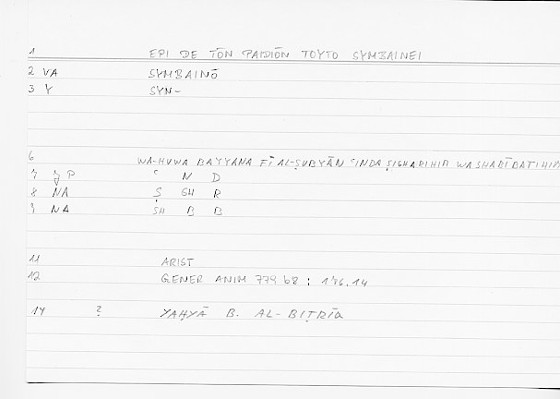 1 EPI DE TŌN PAIDIŌN TOYTO SYMBAINEI
2 VA SYMBAINŌ
3 Y SYN-
6 WA-HUWA BAYYANA FĪ AL-ṢUBYĀN ʿINDA ṢIGHARIHIM
7 P ʿ N D
8 NA Ṣ GH R
9 NA SH B B
11 ARIST
12 GENER ANIM 779 b8 : 176.14
14 ? YAḤYĀ B. AL-BIṬRĪQ